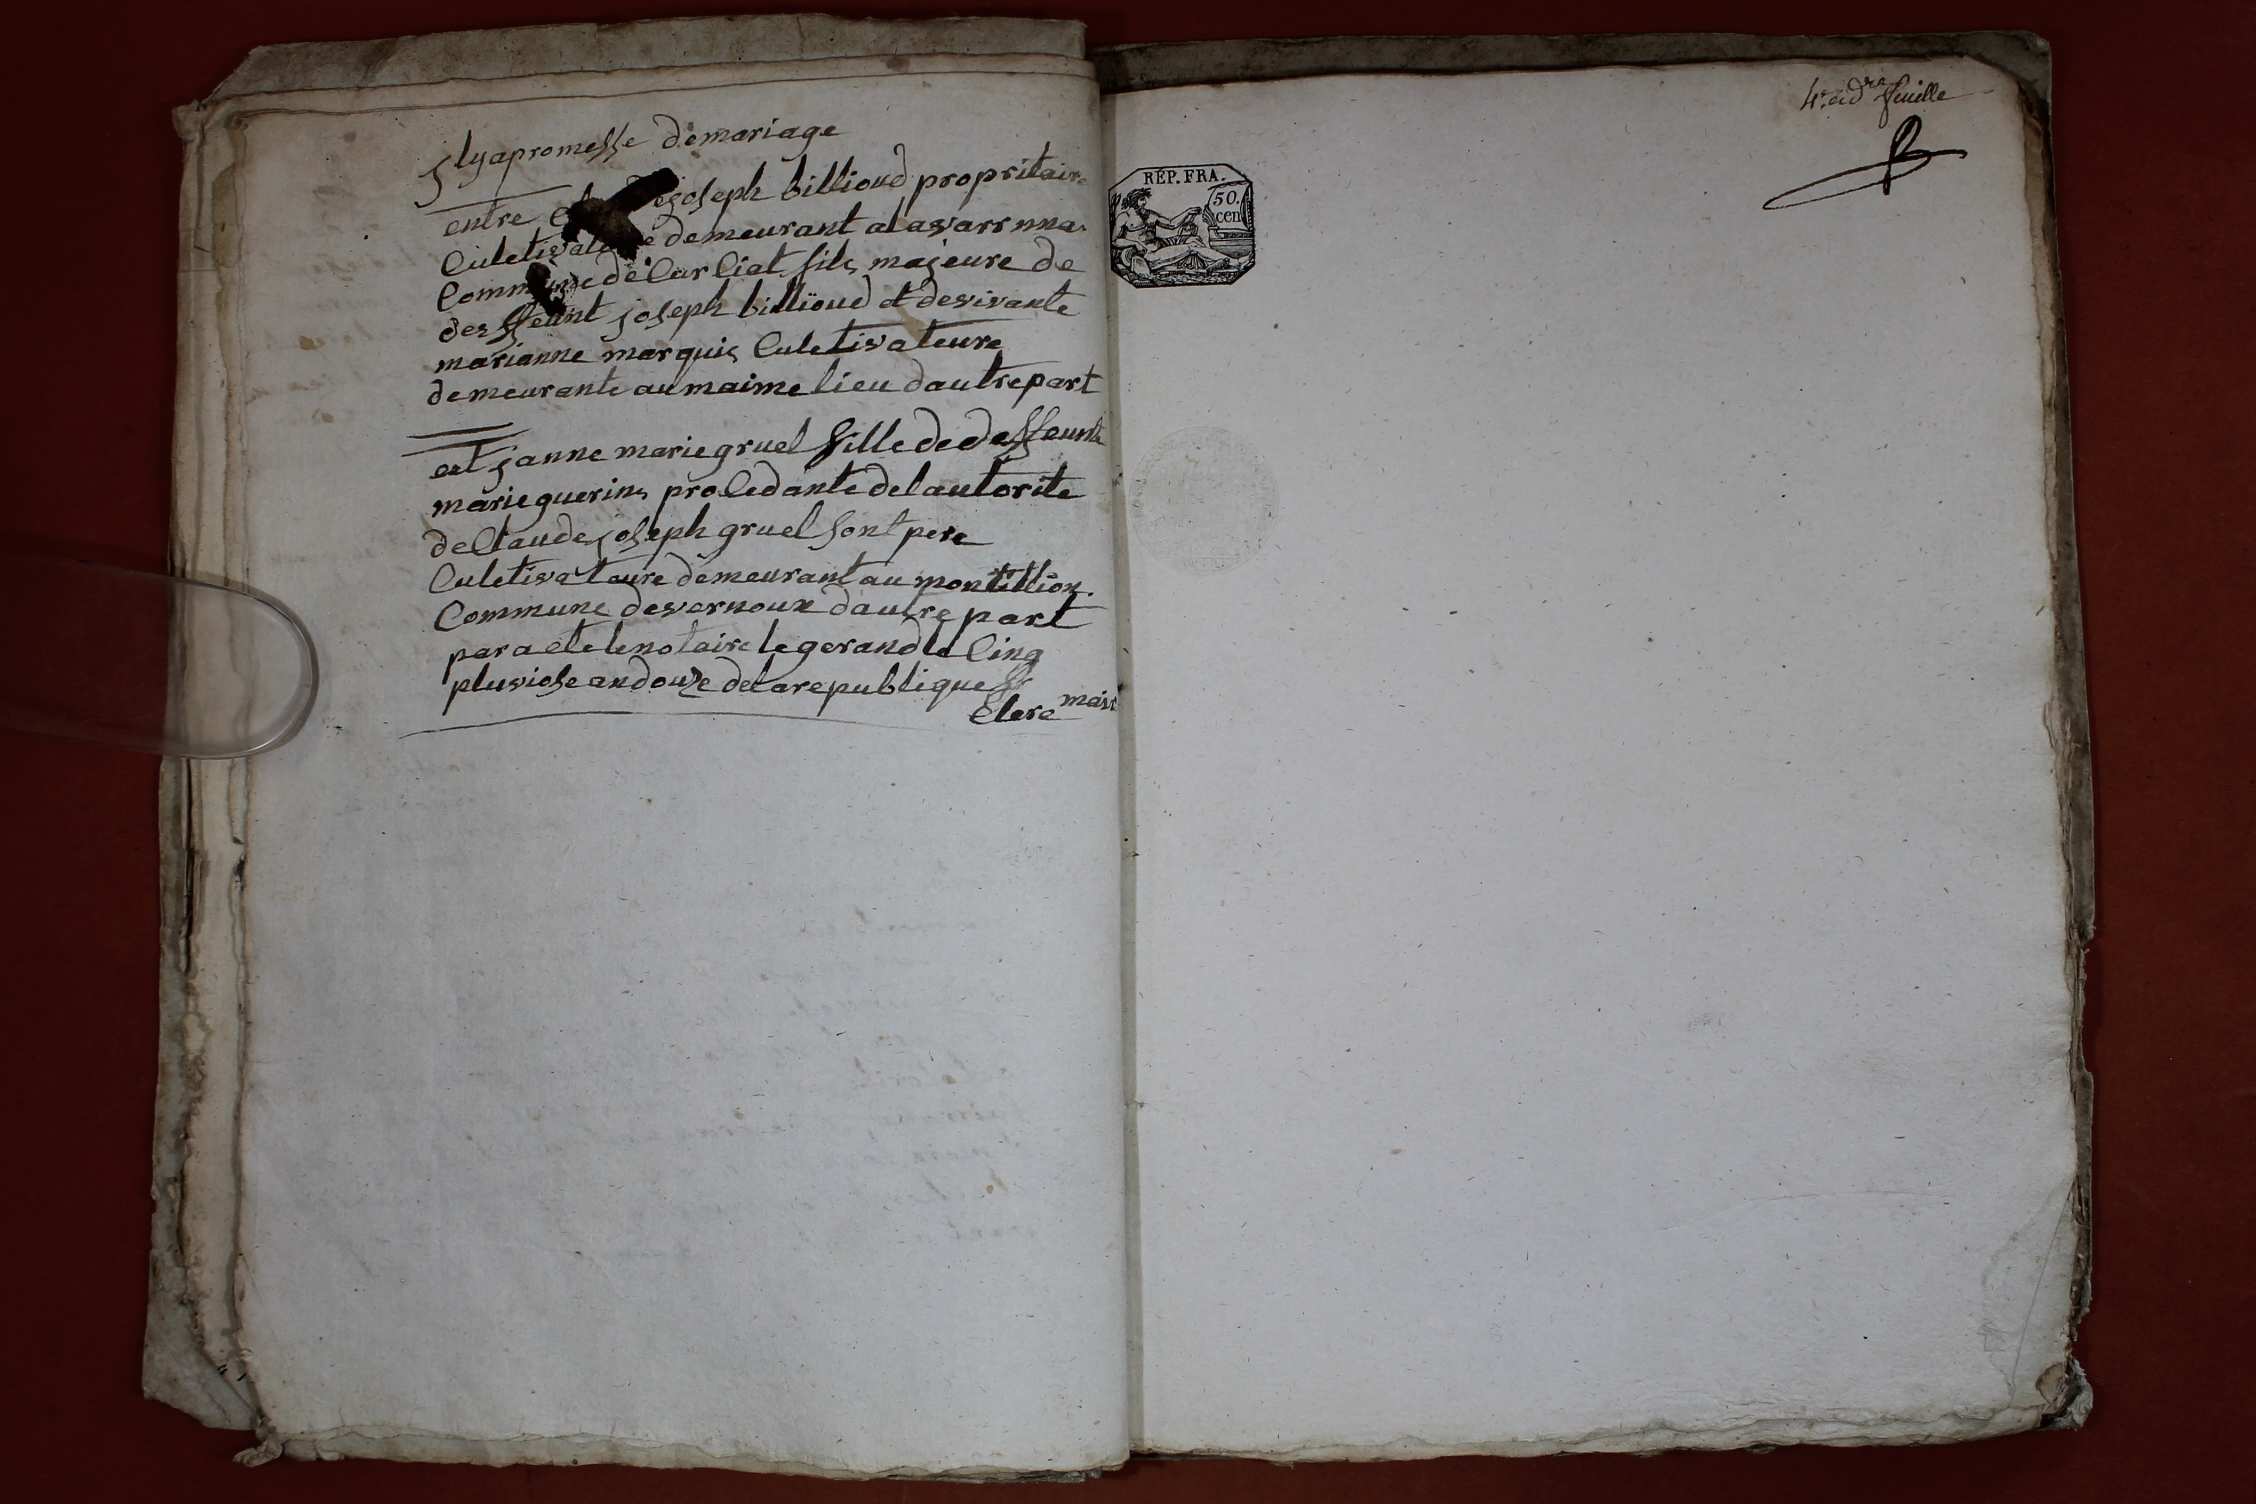 Ilyapromesse demariage
entre joseph billioud propritaire
Culetivateure demeurant alavarenna
Commune de Curciat fils majeure de
deffeunt joseph billioud et devivante
marianne marquis Culetivateure
demeurante aumaime lieu dautrepart
est janne mariegruel fille dedeffeunte
marieguerin procedante delautorite
declaude joseph gruel sont pere
Culetivateure demeurant au montillion.
Commune devernoux dautre part
par acte lenotaire legerand le Cinq
pluviose andouze delarepublique
Clere maire
4e. et dre feuille
RÉP. FRA.
50.
cen